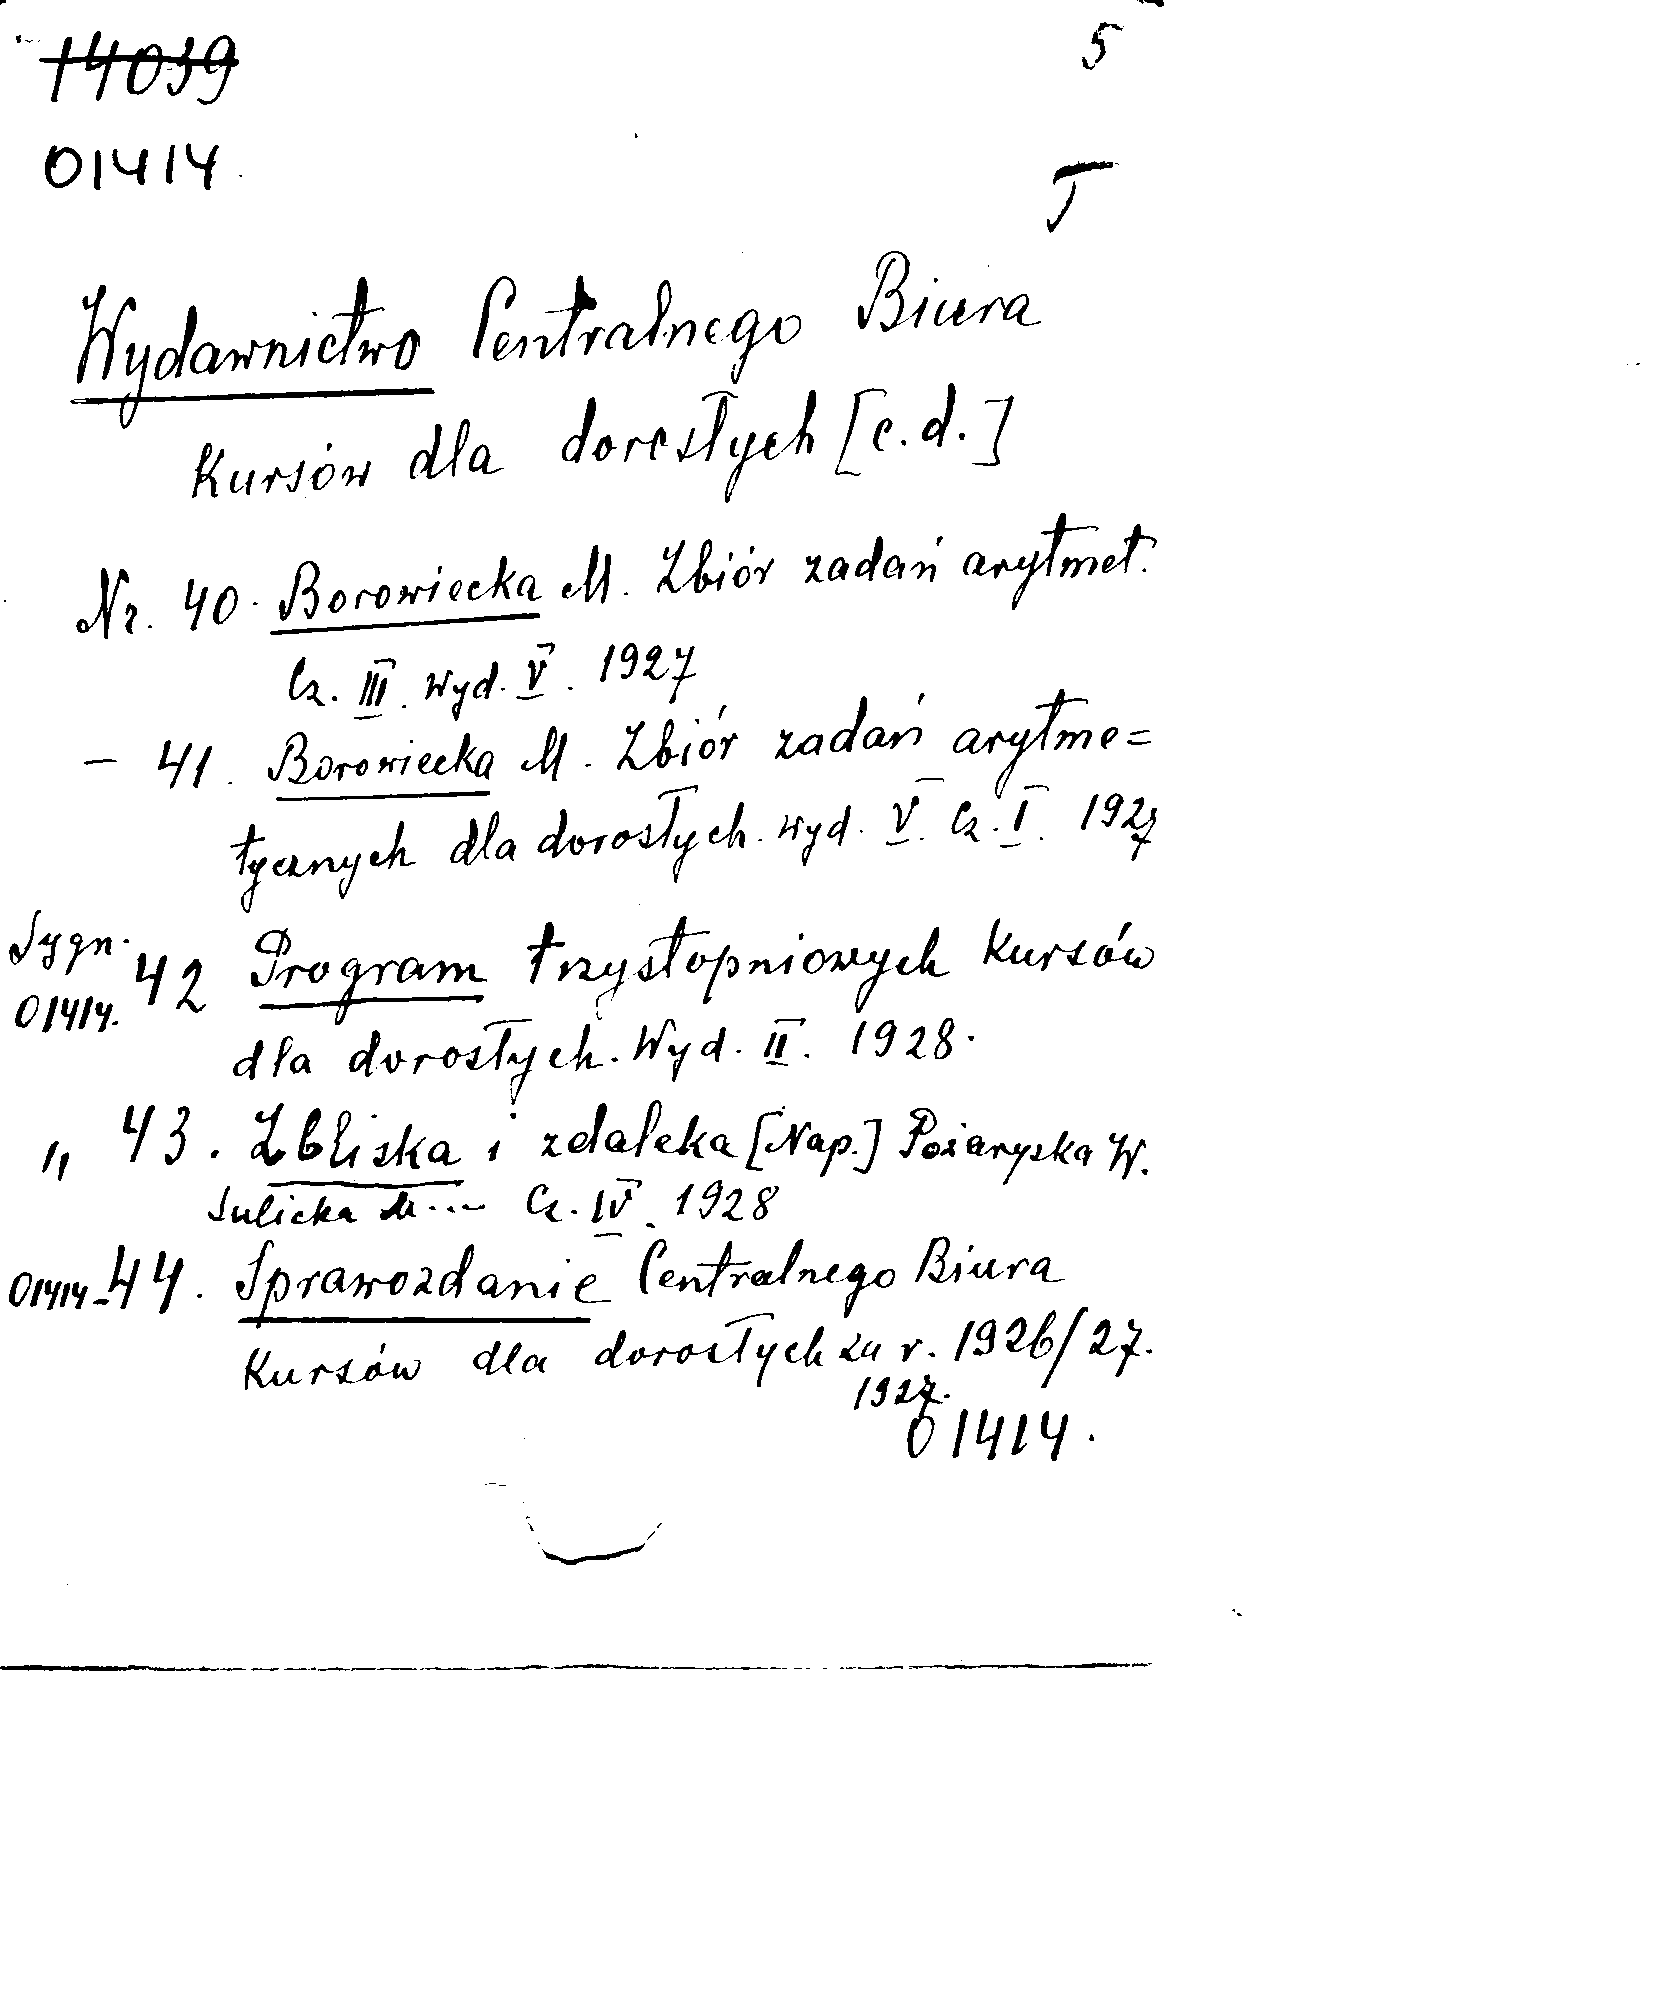 14039
5
01414
T
Wydawnictwo Centralnego Biura
Kursów dla dorosłych [c.d.]
Nr. 40. Borowiecka M. Zbiór zadań arytmet.
Cz. III. wyd. V. 1927
— 41. Borowiecka M. Zbiór zadań arytme=
tycznych dla dorosłych. wyd. V. Cz. I. 1927
Sygn. 42 Program trzystopniowych kursów
01414.
dla dorosłych. Wyd. II. 1928.
„ 43. Zbliska i zdaleka [Nap.] Pożaryska W.
Sulicka M... Cz. IV. 1928
01414 - 44. Sprawozdanie Centralnego Biura
Kursów dla dorosłych za r. 1926/27.
1927.
01414.